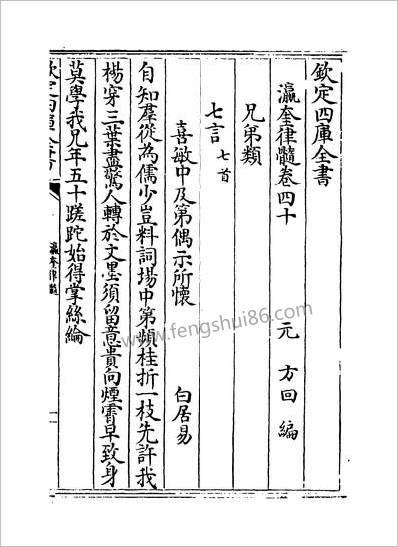 欽定四庫全書
瀛奎律髓卷四十 元 方回 編
兄弟類
七言 七首
喜敏中及第偶示所懷 白居易
自知羣從為儒少豈料詞場中第頻桂折一枝先許我
楊穿三葉盡驚人轉於文墨須留意貴向煙霄早致身
莫學我兄年五十蹉跎始得掌絲綸
欽定四庫全書 瀛奎律髓
www.fengshui86.com